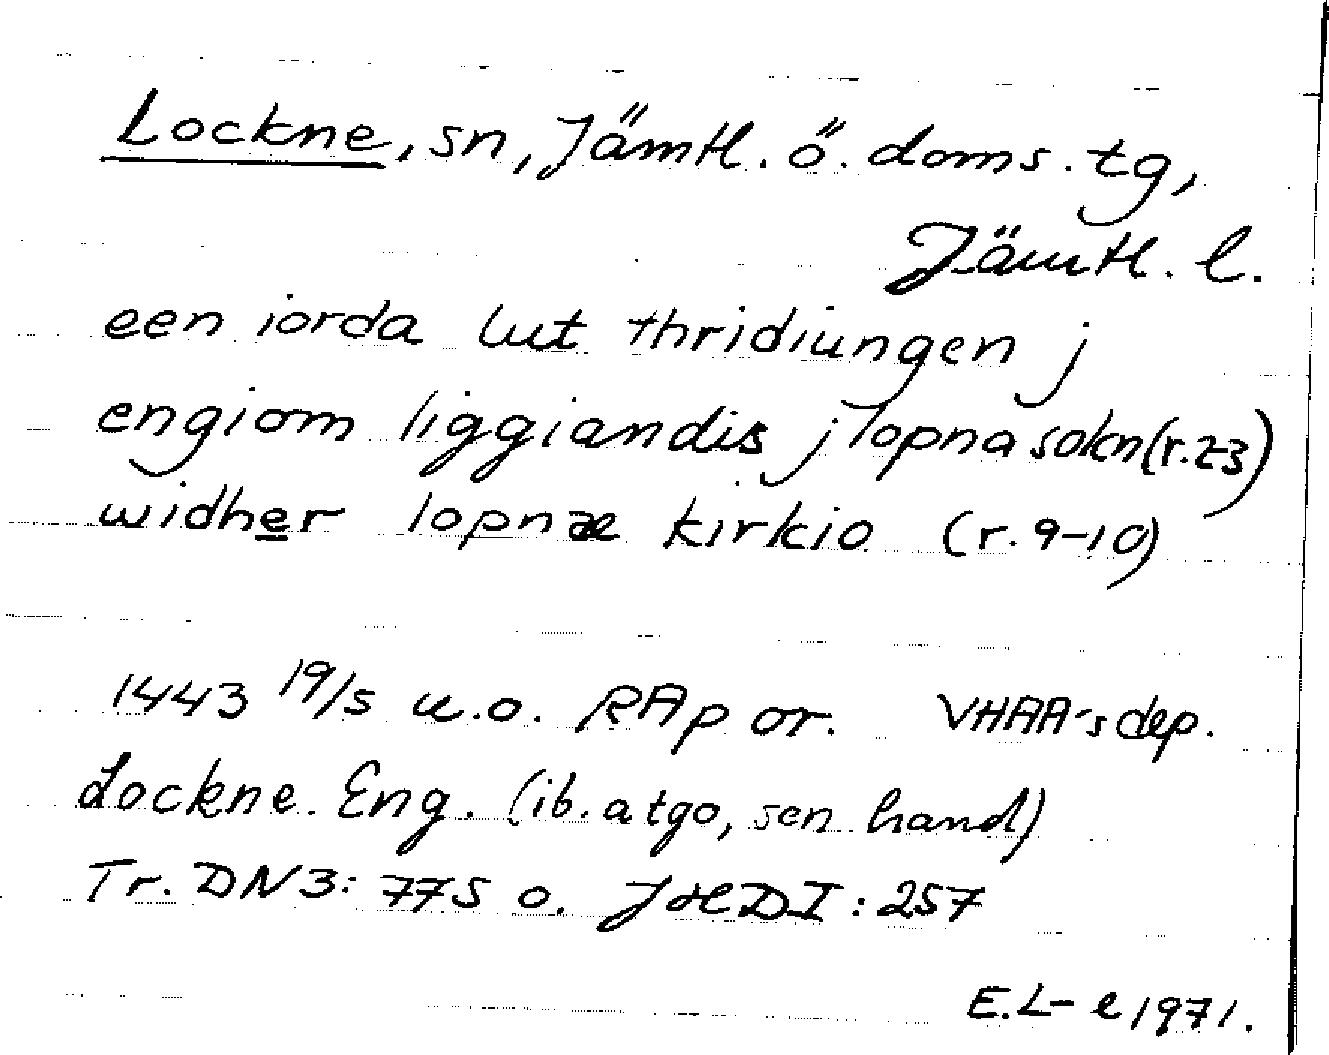 Lockne, sn, Jämtl. ö. doms. tg,
Jämtl. l.
een iorda lut thridiungen j
engiom liggiandis j lopna sokn (r. 2-3)
widher lopnæ kirkio (r. 9-10)
1443 19/5 u.o. RAp or. VHAA-s dep.
Lockne. Eng. (ib. a tgo, sen hand)
Tr. DN 3: 775 o. JHD I: 257
E. L-e 1971.